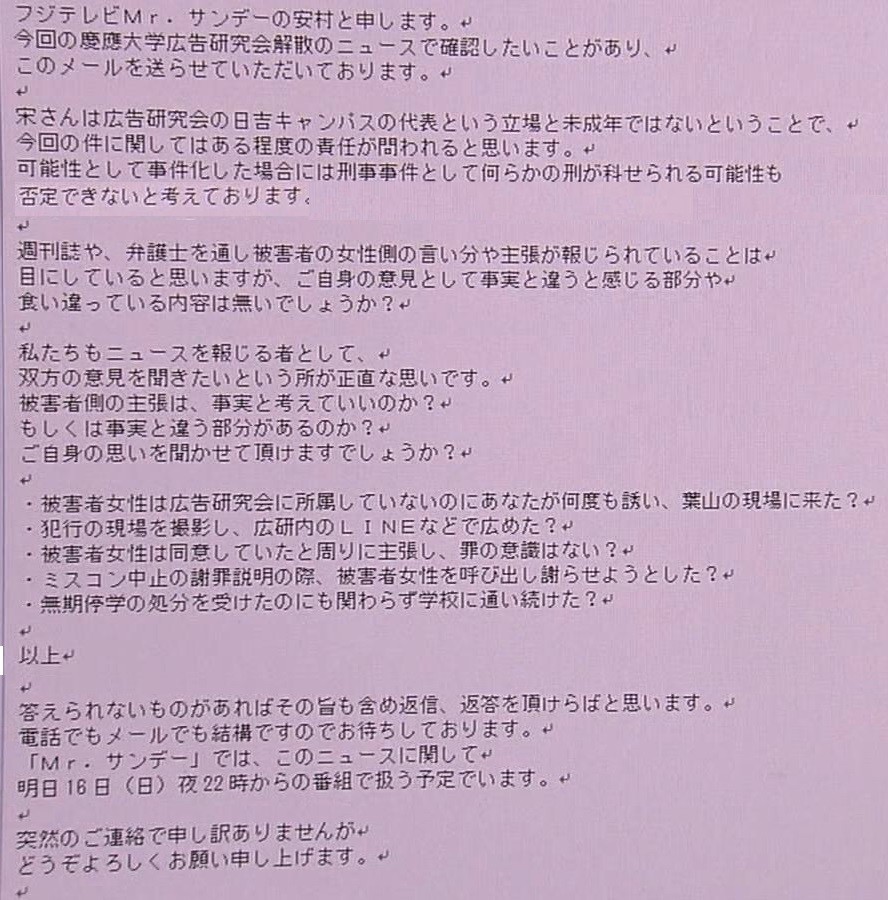 フジテレビMr．サンデーの安村と申します。↵
今回の慶應大学広告研究会解散のニュースで確認したいことがあり、↵
このメールを送らせていただいております。↵
↵
宋さんは広告研究会の日吉キャンパスの代表という立場と未成年ではないということで、↵
今回の件に関してはある程度の責任が問われると思います。↵
可能性として事件化した場合には刑事事件として何らかの刑が科せられる可能性も
否定できないと考えております。
↵
週刊誌や、弁護士を通し被害者の女性側の言い分や主張が報じられていることは↵
目にしていると思いますが、ご自身の意見として事実と違うと感じる部分や↵
食い違っている内容は無いでしょうか？↵
↵
私たちもニュースを報じる者として、↵
双方の意見を聞きたいという所が正直な思いです。↵
被害者側の主張は、事実と考えていいのか？↵
もしくは事実と違う部分があるのか？↵
ご自身の思いを聞かせて頂けますでしょうか？↵
↵
・被害者女性は広告研究会に所属していないのにあなたが何度も誘い、葉山の現場に来た？↵
・犯行の現場を撮影し、広研内のＬＩＮＥなどで広めた？↵
・被害者女性は同意していたと周りに主張し、罪の意識はない？↵
・ミスコン中止の謝罪説明の際、被害者女性を呼び出し謝らせようとした？↵
・無期停学の処分を受けたのにも関わらず学校に通い続けた？↵
↵
以上↵
↵
答えられないものがあればその旨も含め返信、返答を頂けらばと思います。↵
電話でもメールでも結構ですのでお待ちしております。↵
「Ｍｒ．サンデー」では、このニュースに関して↵
明日16日（日）夜22時からの番組で扱う予定でいます。↵
↵
突然のご連絡で申し訳ありませんが↵
どうぞよろしくお願い申し上げます。↵
↵